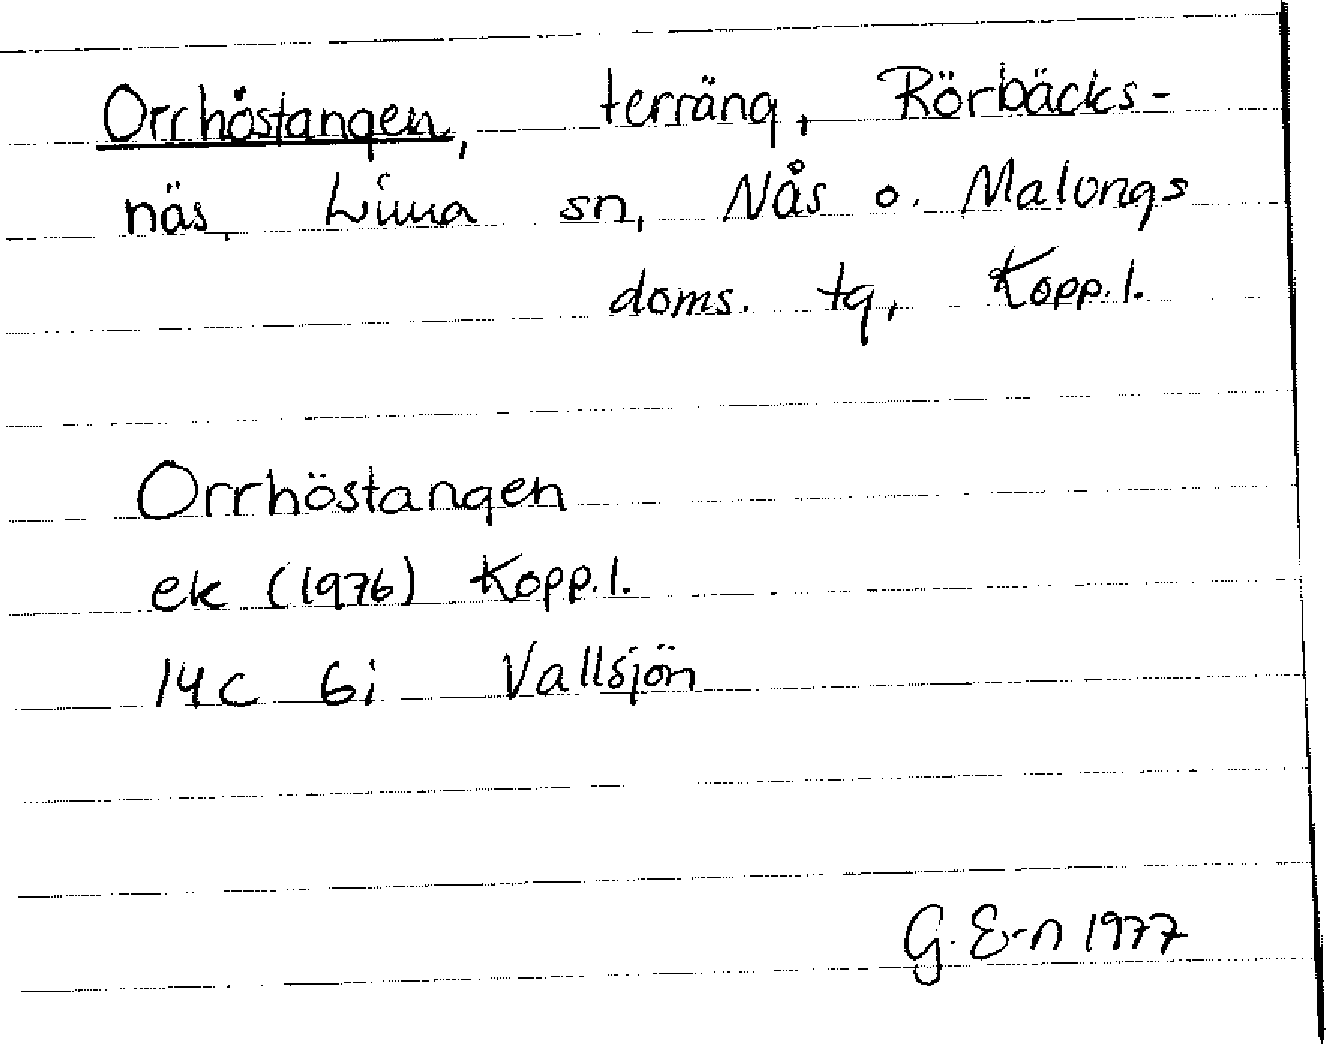 Orrhöstangen, terräng, Rörbäcks-
näs, Lima sn, Nås o. Malungs
doms. tg, Kopp. l.
Orrhöstangen
ek (1976) Kopp. l.
14C 6i Vallsjön
G. E-n 1977